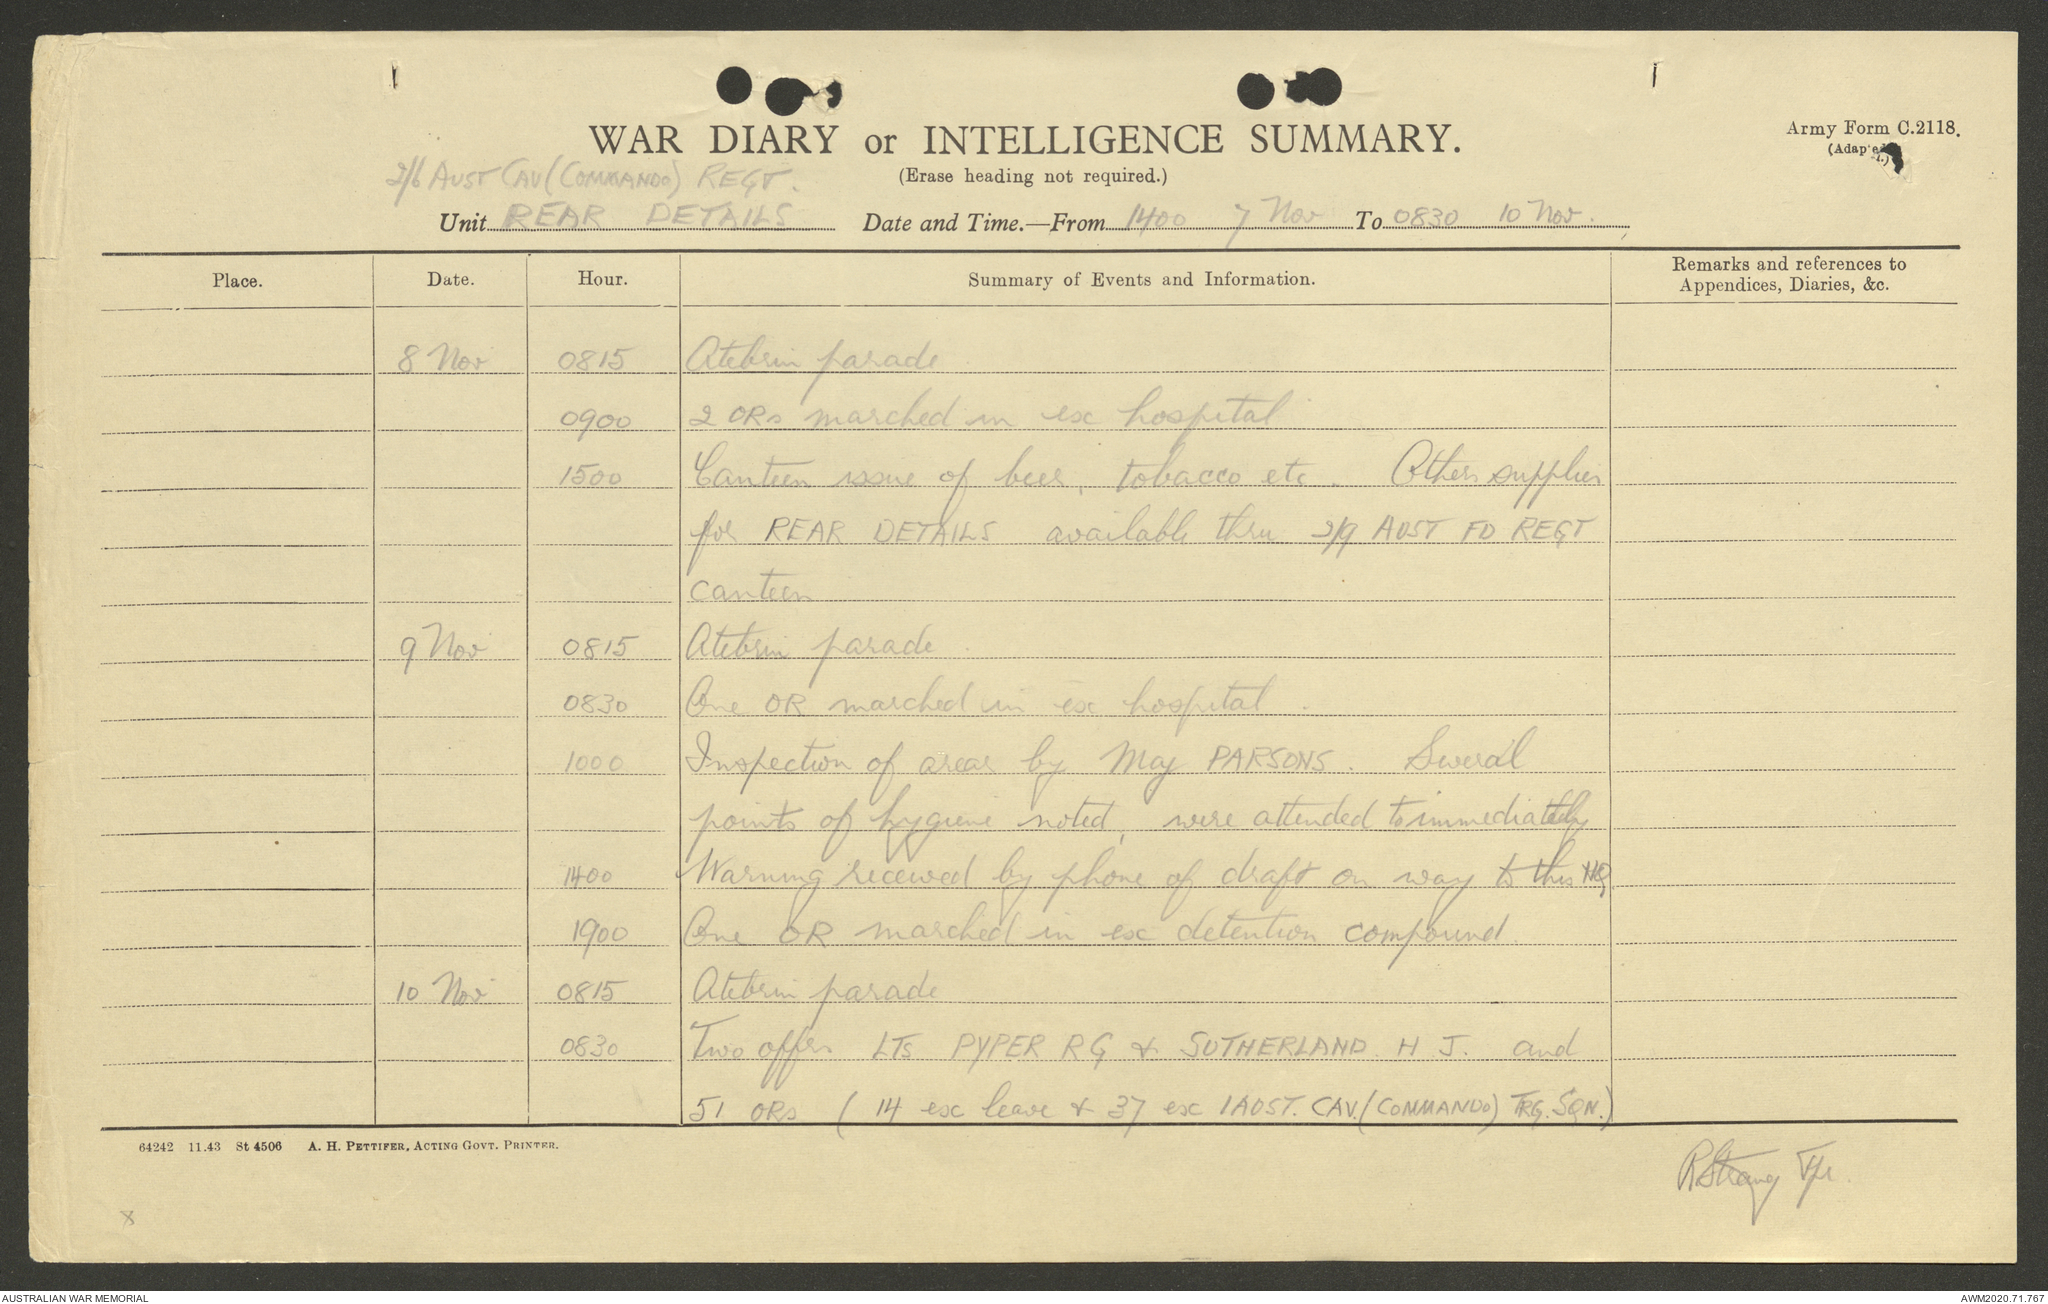 WAR DIARY or INTELLIGENCE SUMMARY.
Army Form C.2118.
(Erase heading not required.)
2/6 AUST CAV (COMMANDO) REGT.
Unit REAR DETAILS Date and Time.—From 1400 7 Nov To 0830 10 Nov.
Place. Date. Hour. Summary of Events and Information. Remarks and references to
Appendices, Diaries, &c.
8 Nov 0815 Atebrin parade.
0900 2 ORs marched in ex hospital
1500 Canteen issue of beer, tobacco etc. Other supplies
for REAR DETAILS available thru 2/9 AUST FD REGT
canteen
9 Nov 0815 Atebrin parade.
0830 One OR marched in ex hospital.
1000 Inspection of areas by Maj PARSONS. Several
points of hygiene noted, were attended to immediately
1400 Warning received by phone of draft on way to this HQ.
1900 One OR marched in ex detention compound.
10 Nov 0815 Atebrin parade
0830 Two offrs LTs PYPER RG & SUTHERLAND H J. and
51 ORs (14 ex leave & 37 ex 1 AUST. CAV. (COMMANDO) TRG. SQN.)
64242 11.43 St 4506 A. H. PETTIFER, ACTING GOVT. PRINTER.
RStrang Tpr.
X
AUSTRALIAN WAR MEMORIAL
AWM2020.71.767